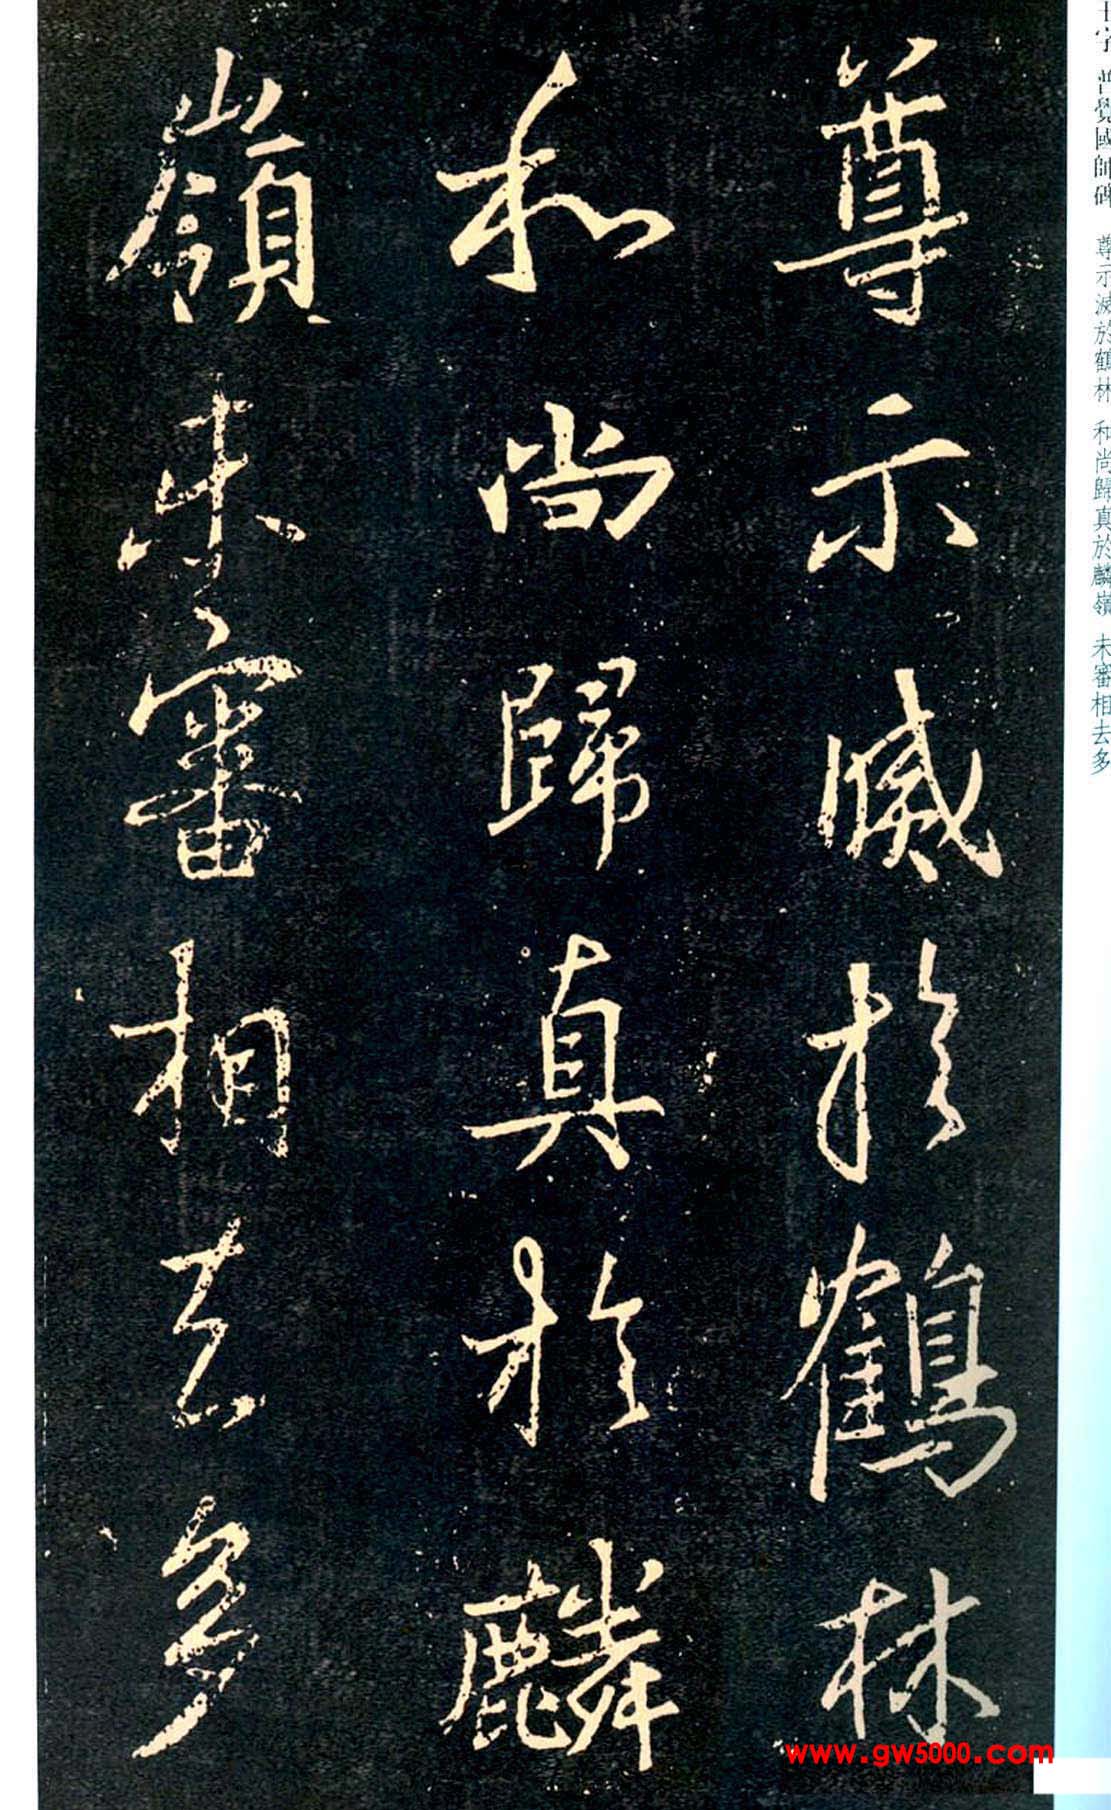 尊示滅於鶴林
和尚歸真於麟
嶺未審相去多
王字 普覺國師碑 尊示滅於鶴林 和尚歸真於麟嶺 未審相去多
www.gw5000.com